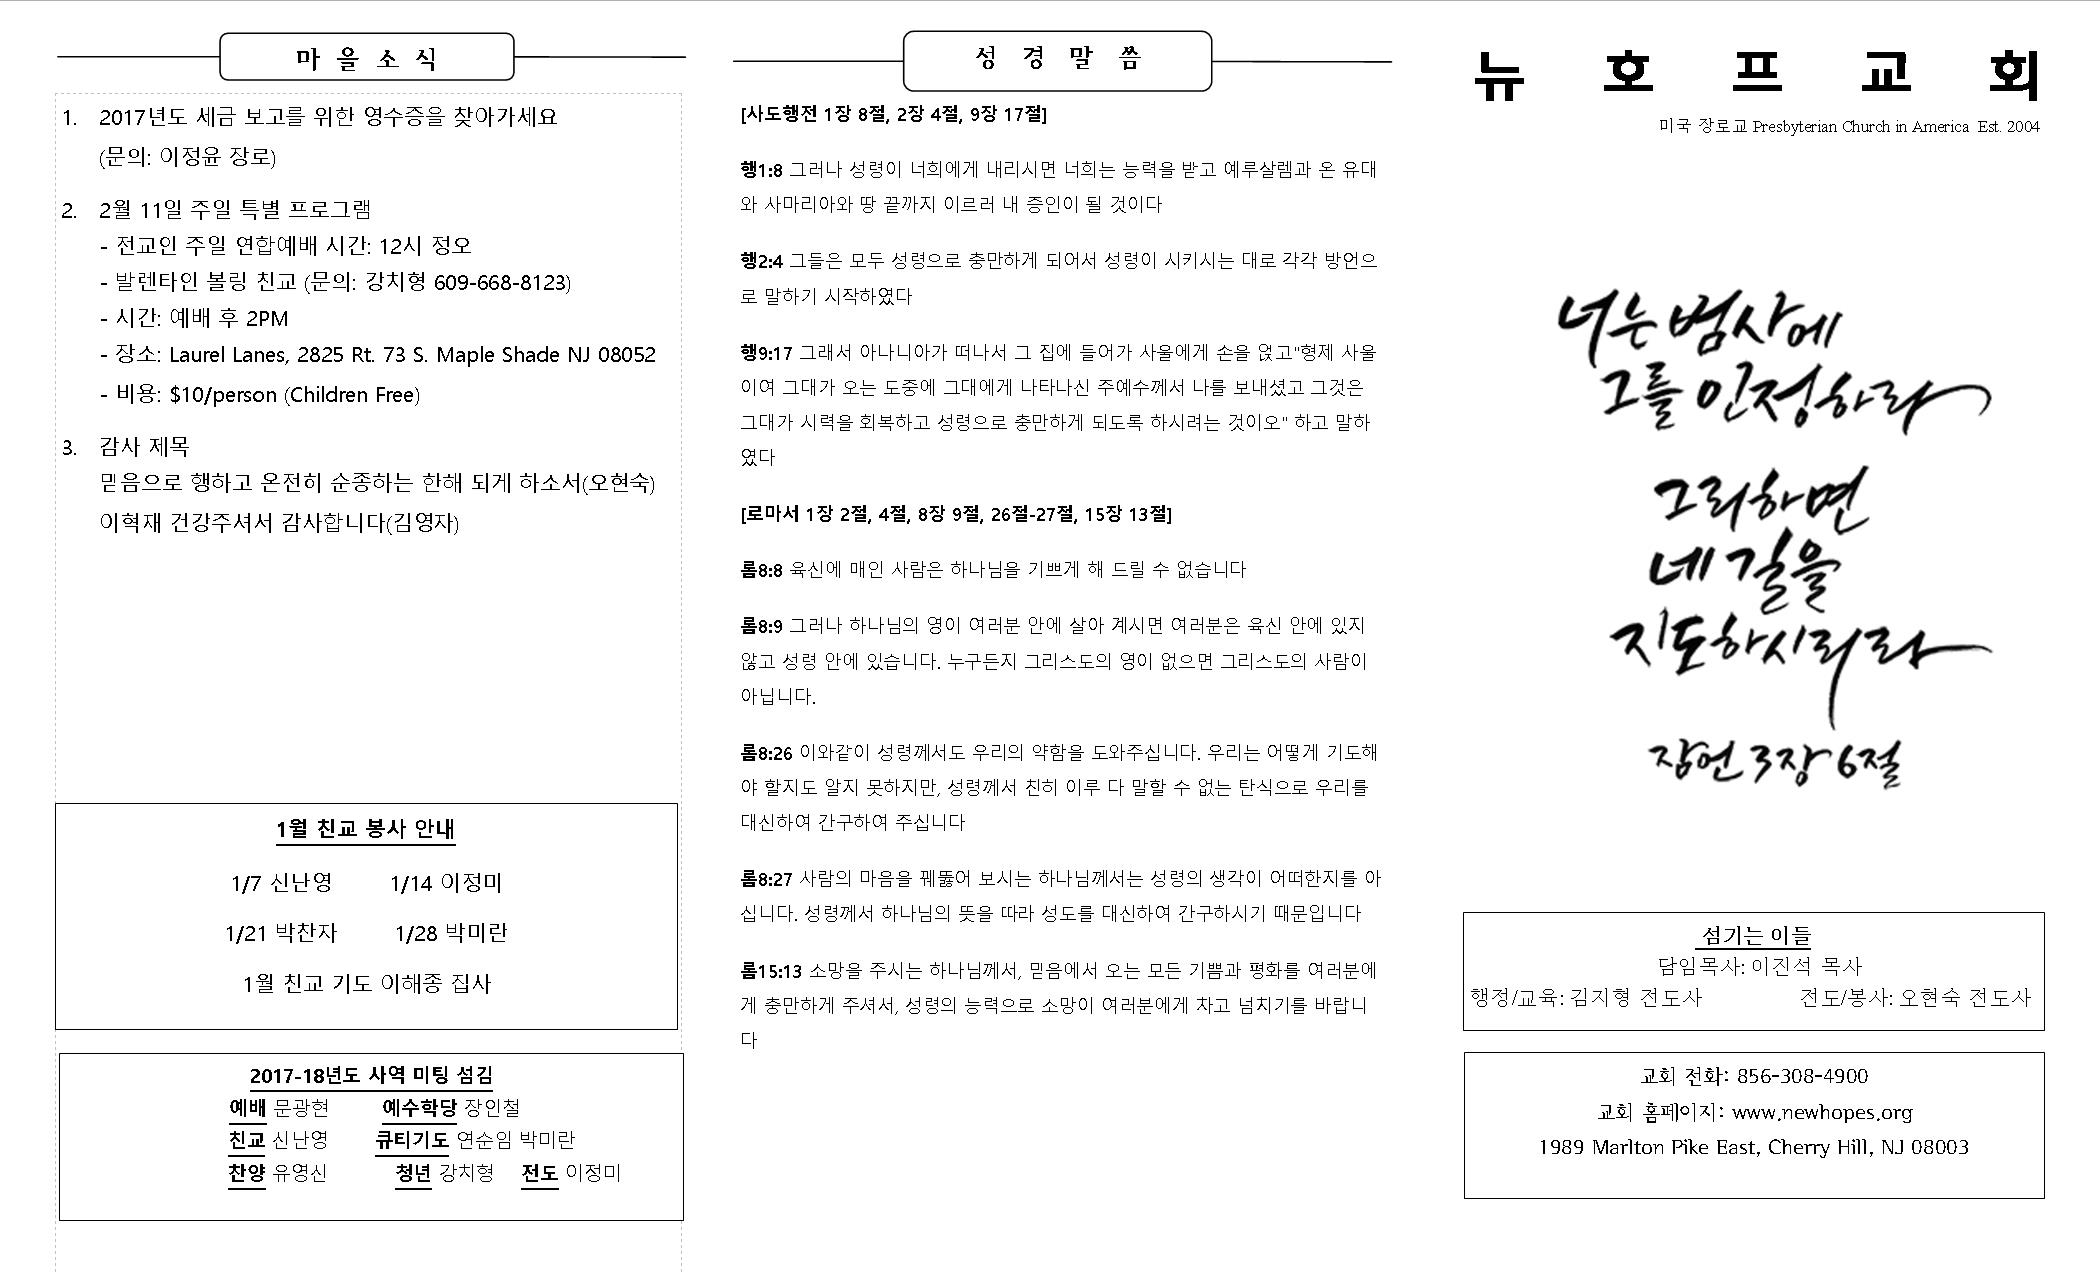 마 을 소 식
1. 2017년도 세금 보고를 위한 영수증을 찾아가세요
(문의: 이정윤 장로)
2. 2월 11일 주일 특별 프로그램
- 전교인 주일 연합예배 시간: 12시 정오
- 발렌타인 볼링 친교 (문의: 강치형 609-668-8123)
- 시간: 예배 후 2PM
- 장소: Laurel Lanes, 2825 Rt. 73 S. Maple Shade NJ 08052
- 비용: $10/person (Children Free)
3. 감사 제목
믿음으로 행하고 온전히 순종하는 한해 되게 하소서(오현숙)
이혁재 건강주셔서 감사합니다(김영자)
1월 친교 봉사 안내
1/7 신난영 1/14 이정미
1/21 박찬자 1/28 박미란
1월 친교 기도 이해종 집사
2017-18년도 사역 미팅 섬김
예배 문광현 예수학당 장인철
친교 신난영 큐티기도 연순임 박미란
찬양 유영신 청년 강치형 전도 이정미
성 경 말 씀
[사도행전 1장 8절, 2장 4절, 9장 17절]
행1:8 그러나 성령이 너희에게 내리시면 너희는 능력을 받고 예루살렘과 온 유대
와 사마리아와 땅 끝까지 이르러 내 증인이 될 것이다
행2:4 그들은 모두 성령으로 충만하게 되어서 성령이 시키시는 대로 각각 방언으
로 말하기 시작하였다
행9:17 그래서 아나니아가 떠나서 그 집에 들어가 사울에게 손을 얹고"형제 사울
이여 그대가 오는 도중에 그대에게 나타나신 주예수께서 나를 보내셨고 그것은
그대가 시력을 회복하고 성령으로 충만하게 되도록 하시려는 것이오" 하고 말하
였다
[로마서 1장 2절, 4절, 8장 9절, 26절-27절, 15장 13절]
롬8:8 육신에 매인 사람은 하나님을 기쁘게 해 드릴 수 없습니다
롬8:9 그러나 하나님의 영이 여러분 안에 살아 계시면 여러분은 육신 안에 있지
않고 성령 안에 있습니다. 누구든지 그리스도의 영이 없으면 그리스도의 사람이
아닙니다.
롬8:26 이와같이 성령께서도 우리의 약함을 도와주십니다. 우리는 어떻게 기도해
야 할지도 알지 못하지만, 성령께서 친히 이루 다 말할 수 없는 탄식으로 우리를
대신하여 간구하여 주십니다
롬8:27 사람의 마음을 꿰뚫어 보시는 하나님께서는 성령의 생각이 어떠한지를 아
십니다. 성령께서 하나님의 뜻을 따라 성도를 대신하여 간구하시기 때문입니다
롬15:13 소망을 주시는 하나님께서, 믿음에서 오는 모든 기쁨과 평화를 여러분에
게 충만하게 주셔서, 성령의 능력으로 소망이 여러분에게 차고 넘치기를 바랍니
다
뉴 호 프 교 회
미국 장로교 Presbyterian Church in America Est. 2004
너는 범사에
그를 인정하라
그리하면
네 길을
지도하시리라
잠언 3장 6절
섬기는 이들
담임목사: 이진석 목사
행정/교육: 김지형 전도사 전도/봉사: 오현숙 전도사
교회 전화: 856-308-4900
교회 홈페이지: www.newhopes.org
1989 Marlton Pike East, Cherry Hill, NJ 08003